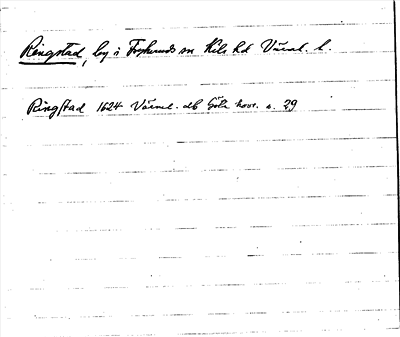 Ringstad, by i Forshunds sn Kils hd Värml. l.
Ringstad 1624 Värml. db Göta hovr. s. 29